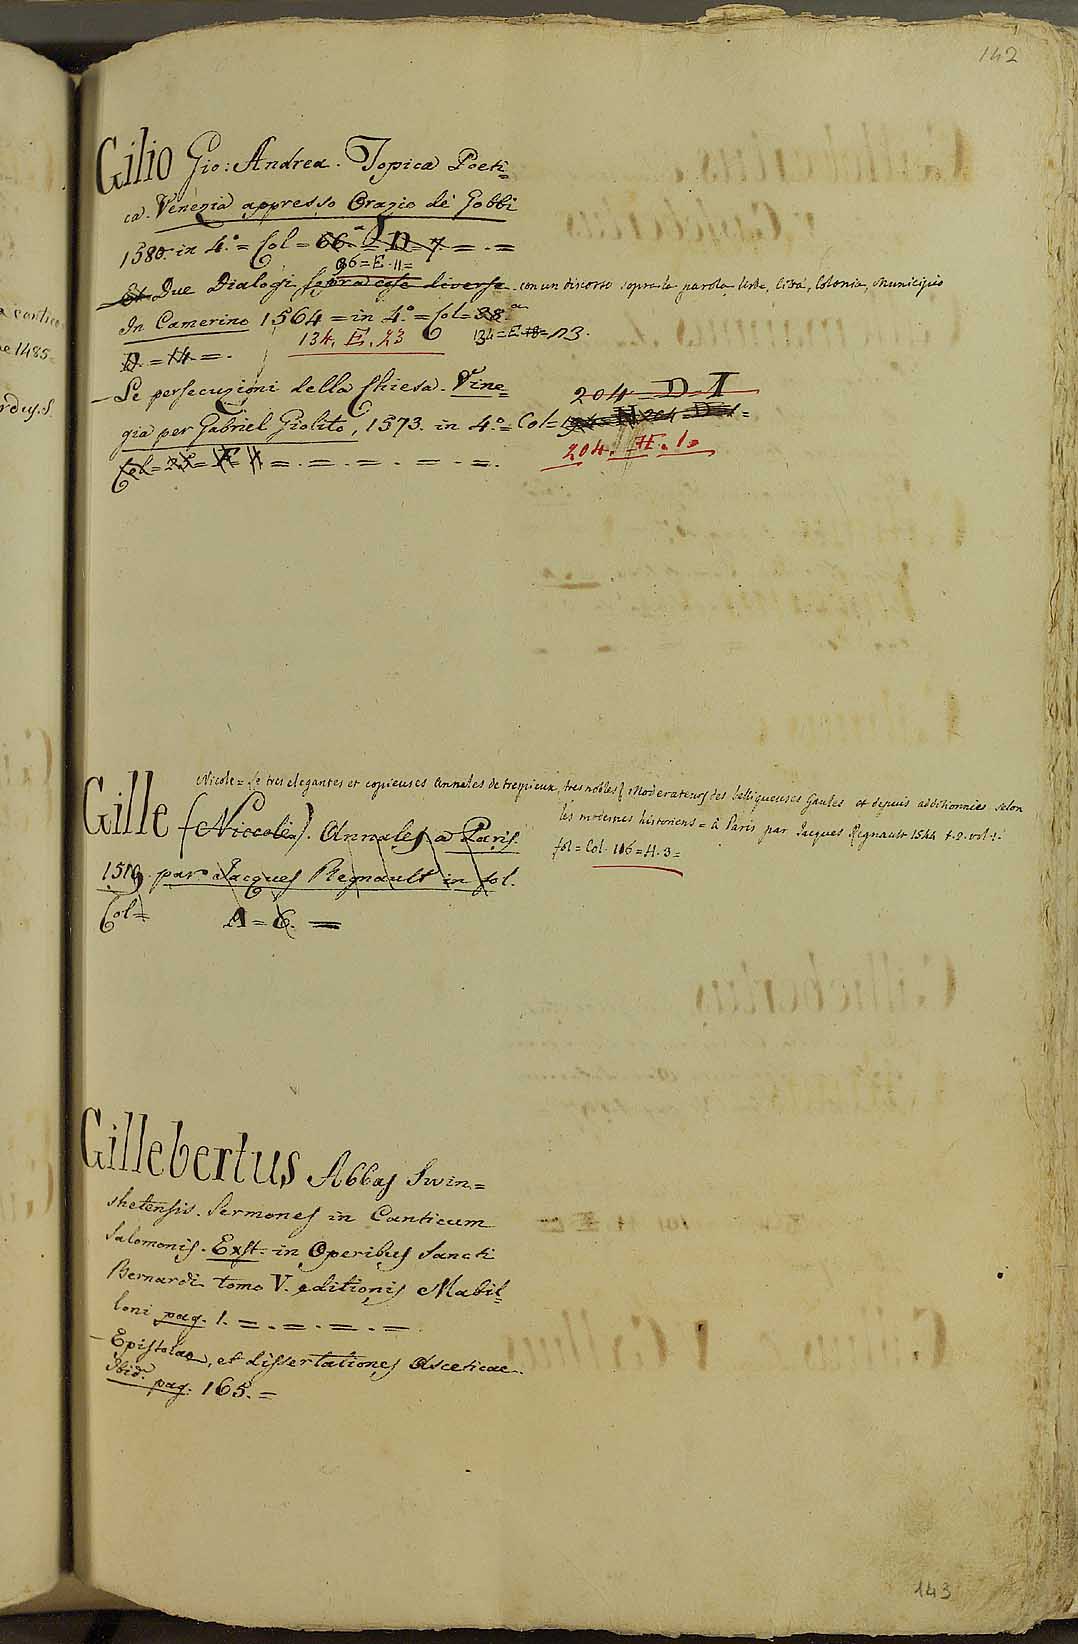 142
Gilio Gio: Andrea. Topica Poeti=
ca. Venezia appresso Orazio de Gobbi
1580. in 4.° = Col = 66. D = 7. = - =
96 = E. 11 =
Et Due Dialogi, sopra cose diverse. con un discorso sopra le parola Urbe, Città, Colonia, Municipio
In Camerino 1564 = in 4.° = Col = 38.
134. E. 23
134 = E. 18 = n 3.
D. = 14. = .
— Le persecuzioni della Chiesa. Vine=
204 D I
gia per Gabriel Giolito, 1573. in 4.° = Col = 204 = D = 1 =
204. H. 1 =
Col = = . = . = . = . = .
Nicole = Le tres elegantes et copieuses Annales de trepieux, tres nobles Moderateurs des belliqueuses Gaules et depuis additionnées selon
les modernes historiens = à Paris par Jacques Regnault 1544 t. 2. vol:
fol = Col. 106 = H. 3 =
Gille (Niccola). Annales a Paris
1519. par Jacques Regnault in fol.
Col = A = C. =
Gillebertus Abbas Swin=
shetensis. Sermones in Canticum
Salomonis. Exst. in Operibus Sancti
Bernardi tomo V. editionis Mabil=
loni pag. 1. = . = . = . = .
— Epistolae, et dissertationes Asceticae.
Ibid. pag. 165. =
143